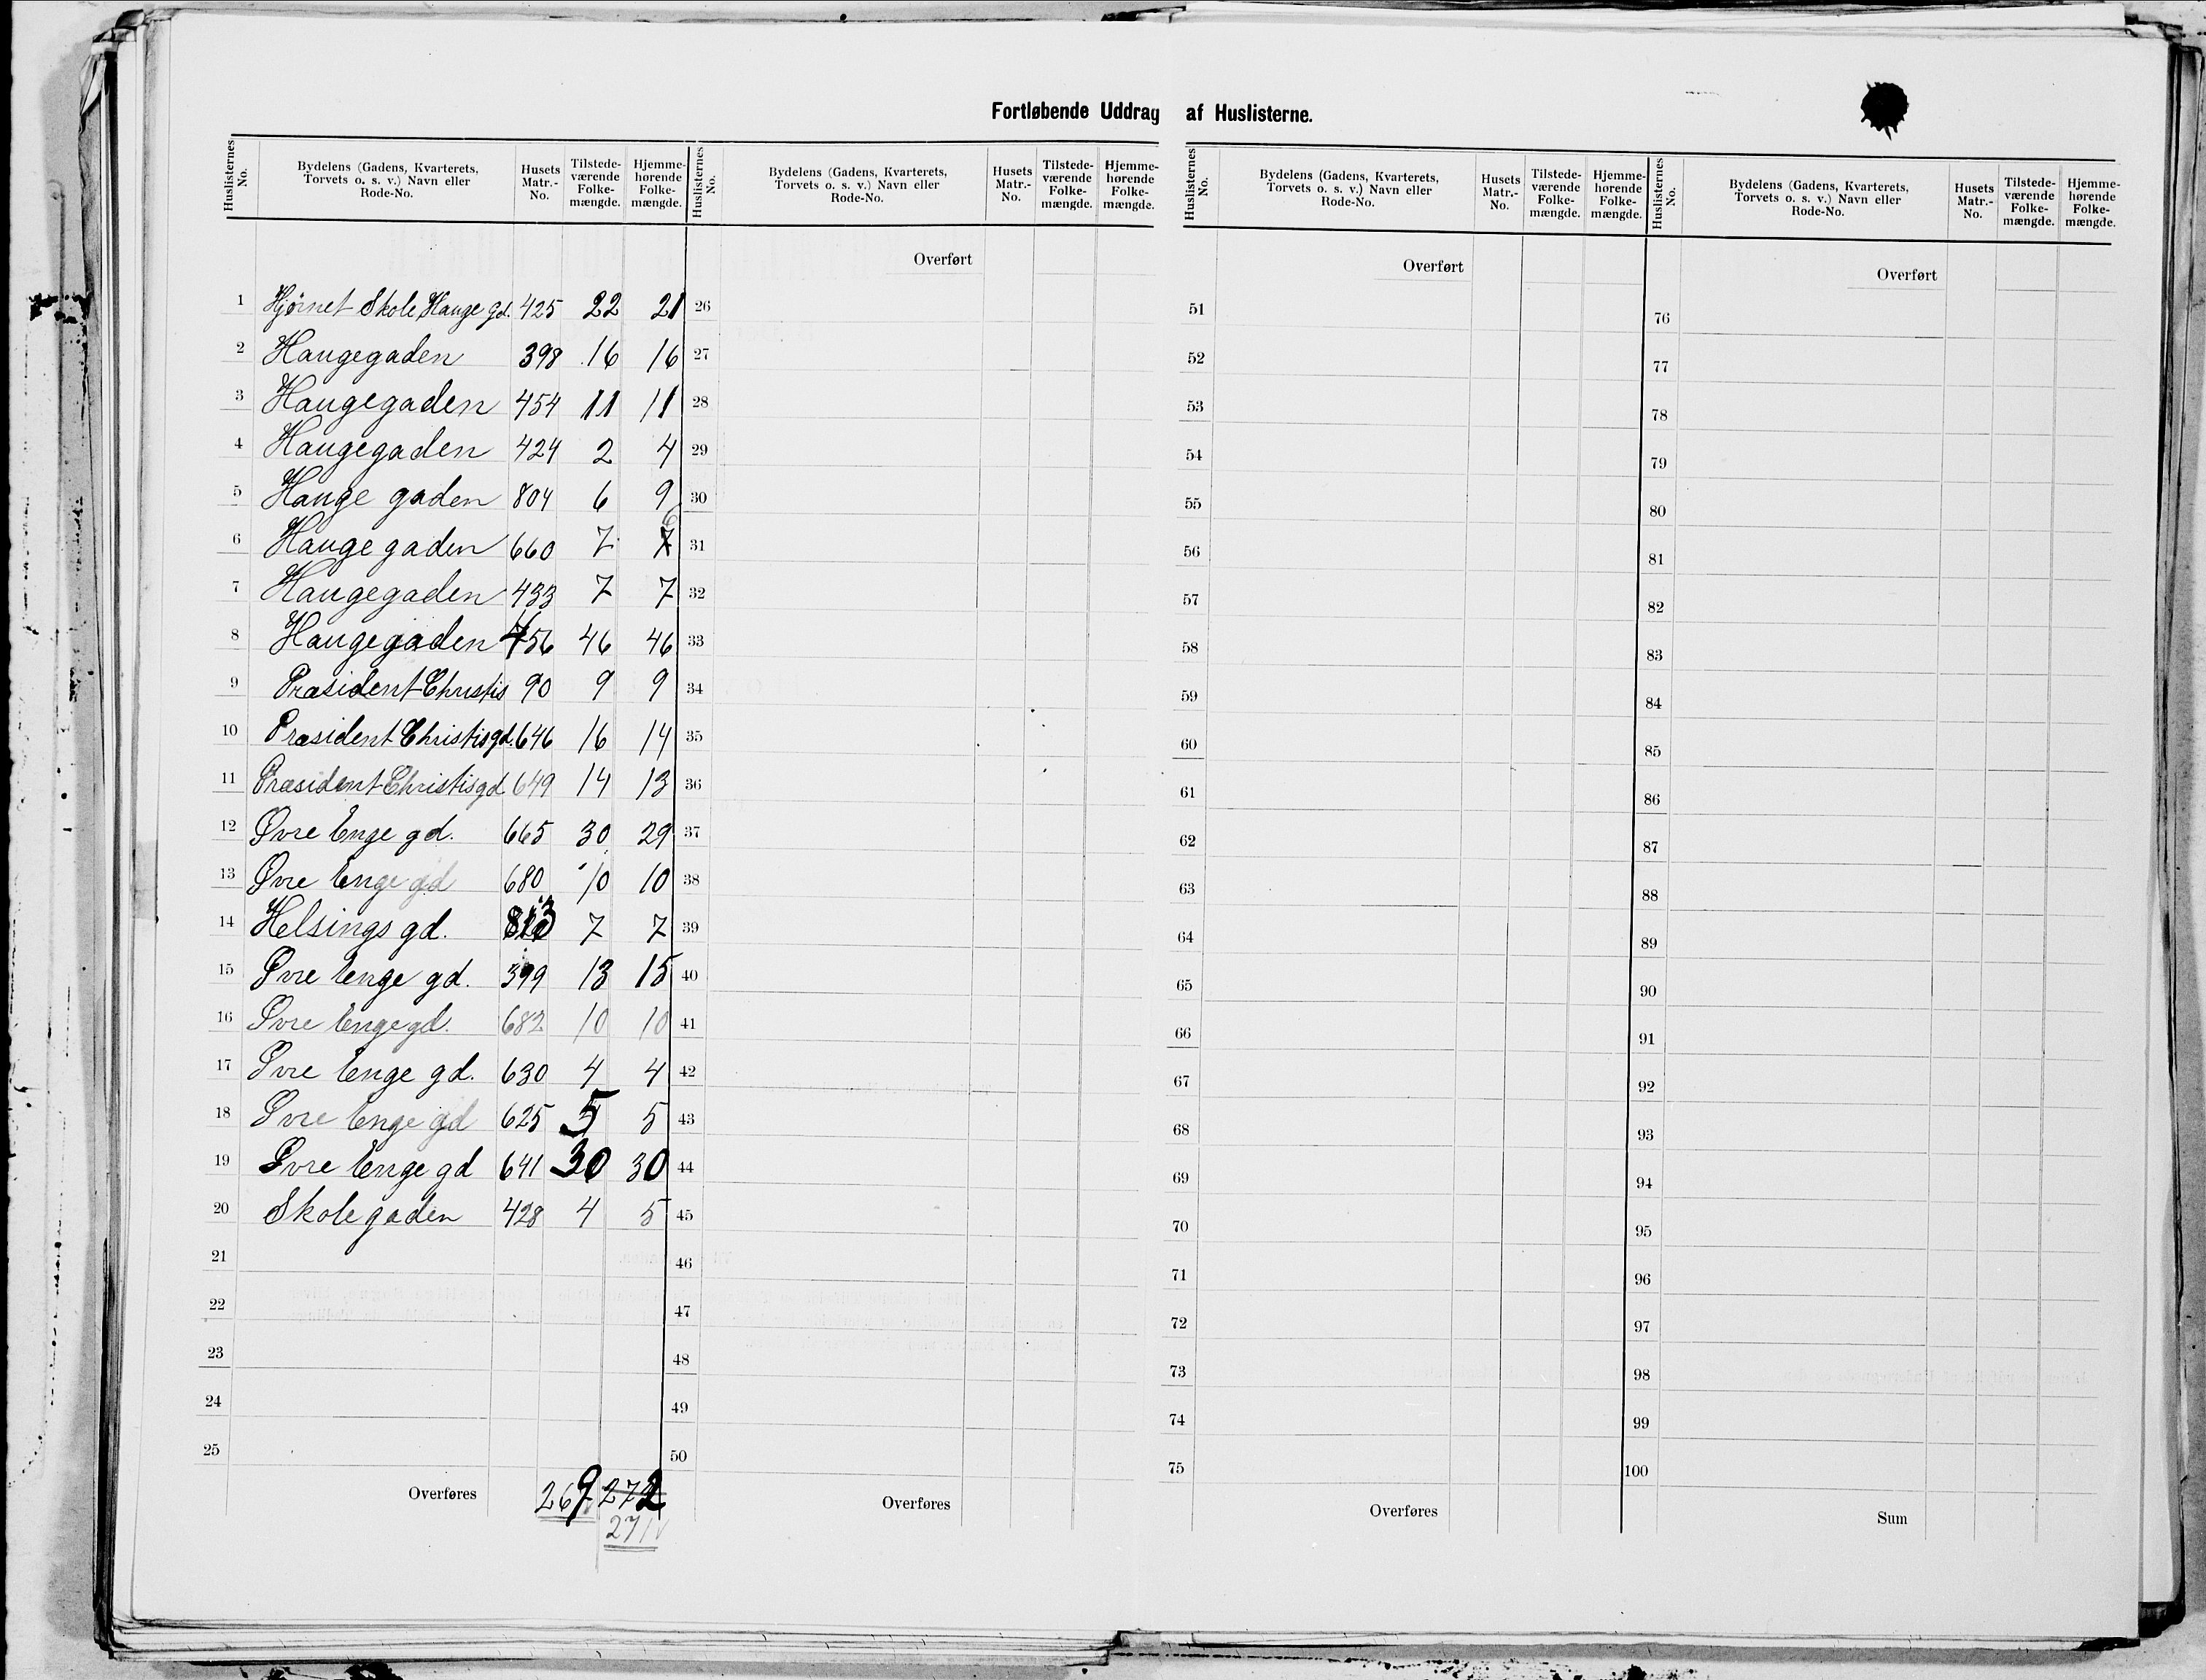 Fortløbende Uddrag af Huslisterne.
Huslisternes No. Bydelens (Gadens, Kvarterets, Torvets o. s. v.) Navn eller Rode-No. Husets Matr.-No. Tilstedeværende Folkemængde. Hjemmehørende Folkemængde.
Huslisternes No. Bydelens (Gadens, Kvarterets, Torvets o. s. v.) Navn eller Rode-No. Husets Matr.-No. Tilstedeværende Folkemængde. Hjemmehørende Folkemængde.
Huslisternes No. Bydelens (Gadens, Kvarterets, Torvets o. s. v.) Navn eller Rode-No. Husets Matr.-No. Tilstedeværende Folkemængde. Hjemmehørende Folkemængde.
Huslisternes No. Bydelens (Gadens, Kvarterets, Torvets o. s. v.) Navn eller Rode-No. Husets Matr.-No. Tilstedeværende Folkemængde. Hjemmehørende Folkemængde.
Overført Overført Overført
1 Hjørnet Skole Hauge gd. 425 22 21 26 51 76
2 Haugegaden 398 16 16 27 52 77
3 Haugegaden 454 11 11 28 53 78
4 Haugegaden 424 2 4 29 54 79
5 Hauge gaden 804 6 9 30 55 80
6 Hauge gaden 660 7 7 6 31 56 81
7 Haugegaden 433 7 7 32 57 82
8 Haugegaden 456 46 46 33 58 83
9 Præsident Christis 90 9 9 34 59 84
10 Præsident Christisgd. 646 16 14 35 60 85
11 Præsident Christisgd 649 14 13 36 61 86
12 Øvre Enge gd. 665 30 29 37 62 87
13 Øvre Enge gd 680 10 10 38 63 88
14 Helsings gd. 7 7 39 64 89
15 Øvre Enge gd. 399 13 15 40 65 90
16 Øvre Enge gd. 682 10 10 41 66 91
17 Øvre Enge gd. 630 4 4 42 67 92
18 Øvre Enge gd 625 5 5 43 68 93
19 Øvre Enge gd 641 30 30 44 69 94
20 Skolegaden 428 4 5 45 70 95
21 46 71 96
22 47 72 97
23 48 73 98
24 49 74 99
25 50 75 100
Overføres 269 272 Overføres Overføres Sum
271